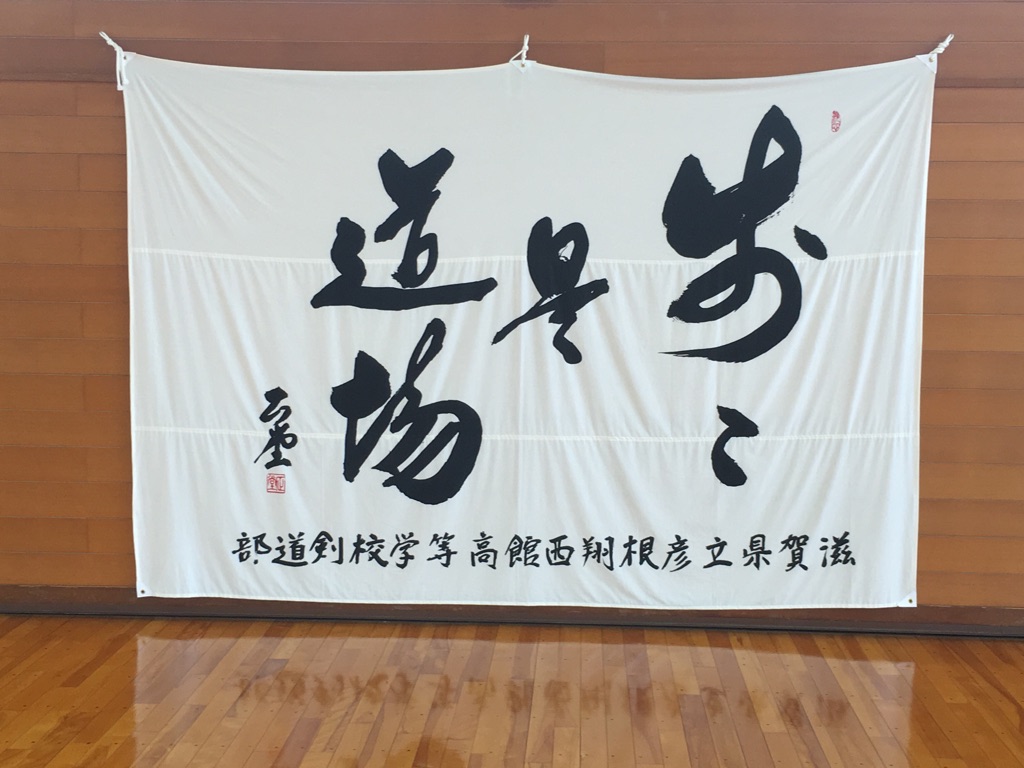 歩々
是
道場
滋賀県立彦根翔西館高等学校剣道部